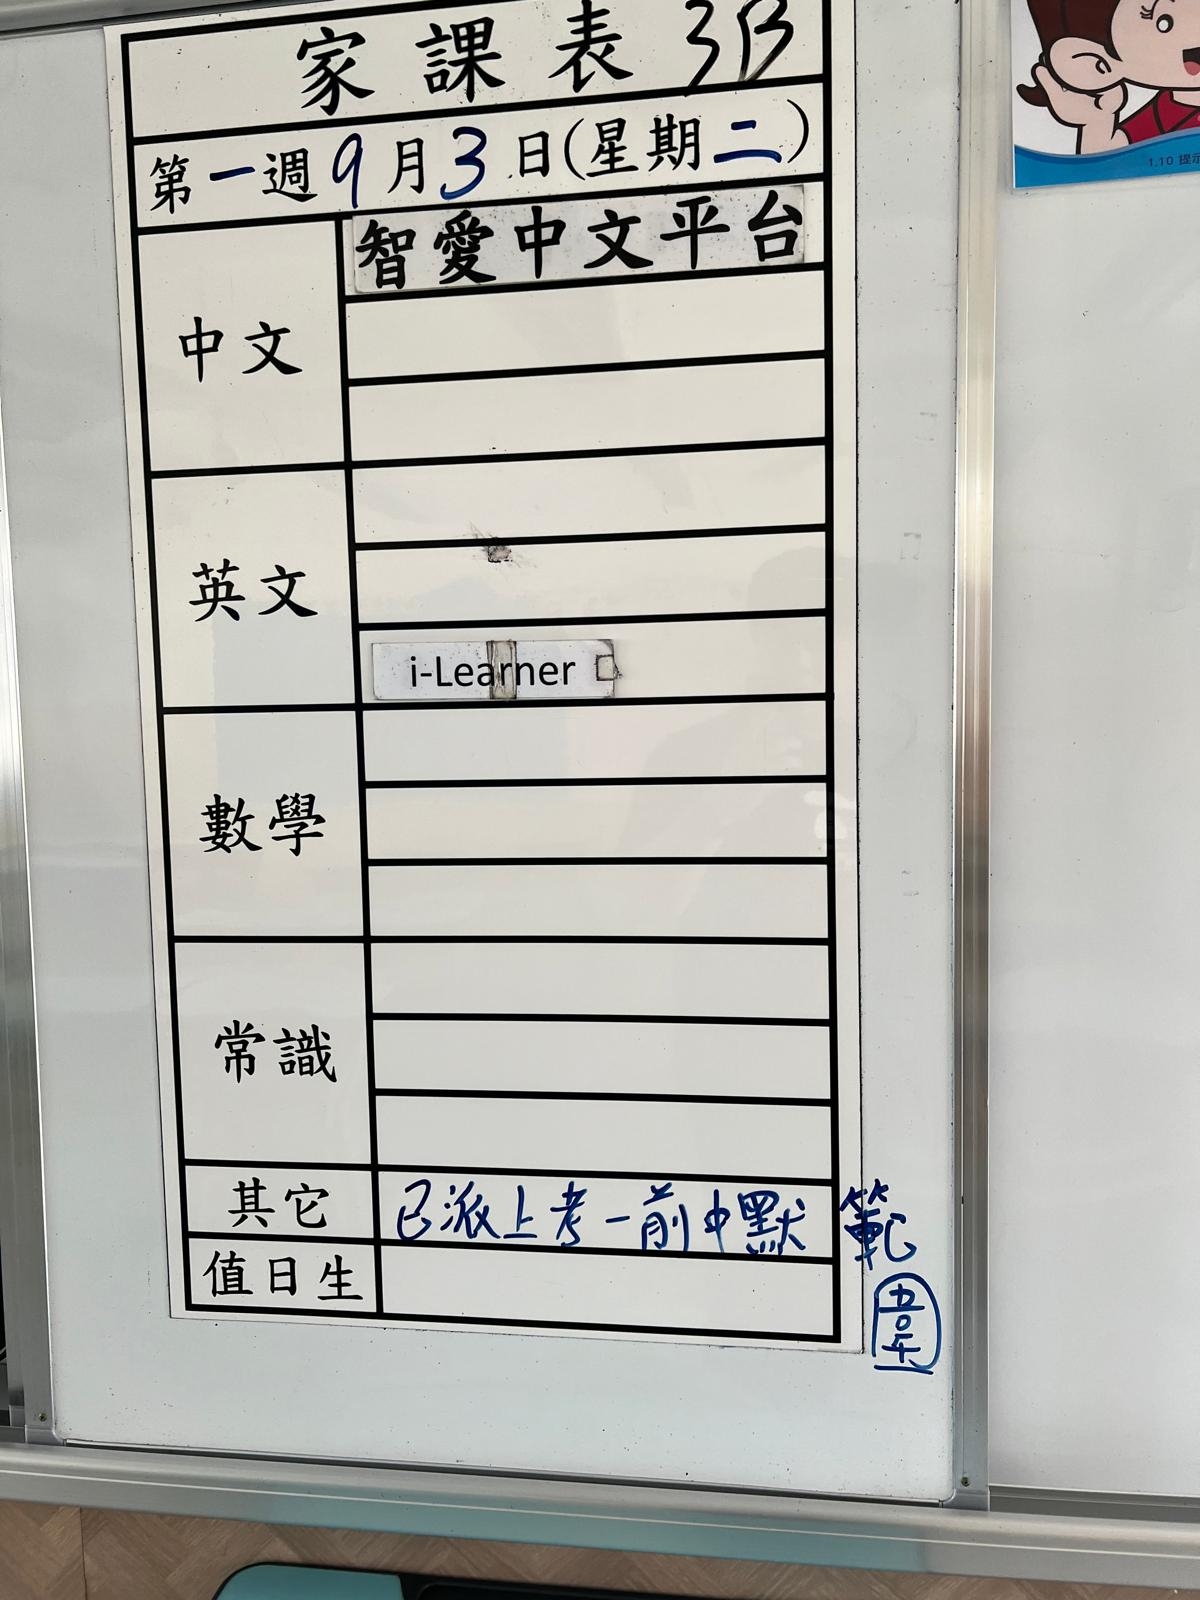 家課表 3B
第一週9月3日(星期二)
智愛中文平台
中文
英文
i-Learner
數學
常識
其它
已派上考一前中默範圍
值日生
1.10 提示